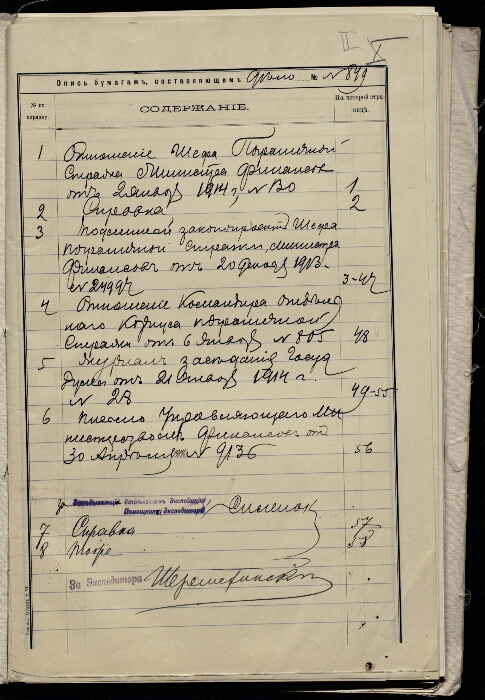 II
X
Опись бумагамъ, составляющимъ дѣло № 849
№ по порядку.
СОДЕРЖАНІЕ.
На которой страницѣ.
1 Отношеніе Шефа Пограничной
Стражи Министра Финансовъ
отъ 2 Января 1914 г. № 30 1
2 Справка 2
3 Подлинный законопроектъ Шефа
пограничной стражи, министра
Финансовъ отъ 20 Декабря 1913
№ 3-47
4 Отношеніе Командира отдѣль
наго Корпуса пограничной
Стражи отъ 6 Января № 805 48
5 Журналъ засѣданія Госуд
Думы отъ 21 Января 1914 г.
№ 28 49-55
6 письмо Управляющаго Ми
нистерствомъ Финансовъ от
30 Апрѣля № 9136 56
За Завѣдывающій Отдѣльною Экспедиціею
Помощникъ Экспедитора
7 Справка 57
8 Тоже 58
За Экспедитора